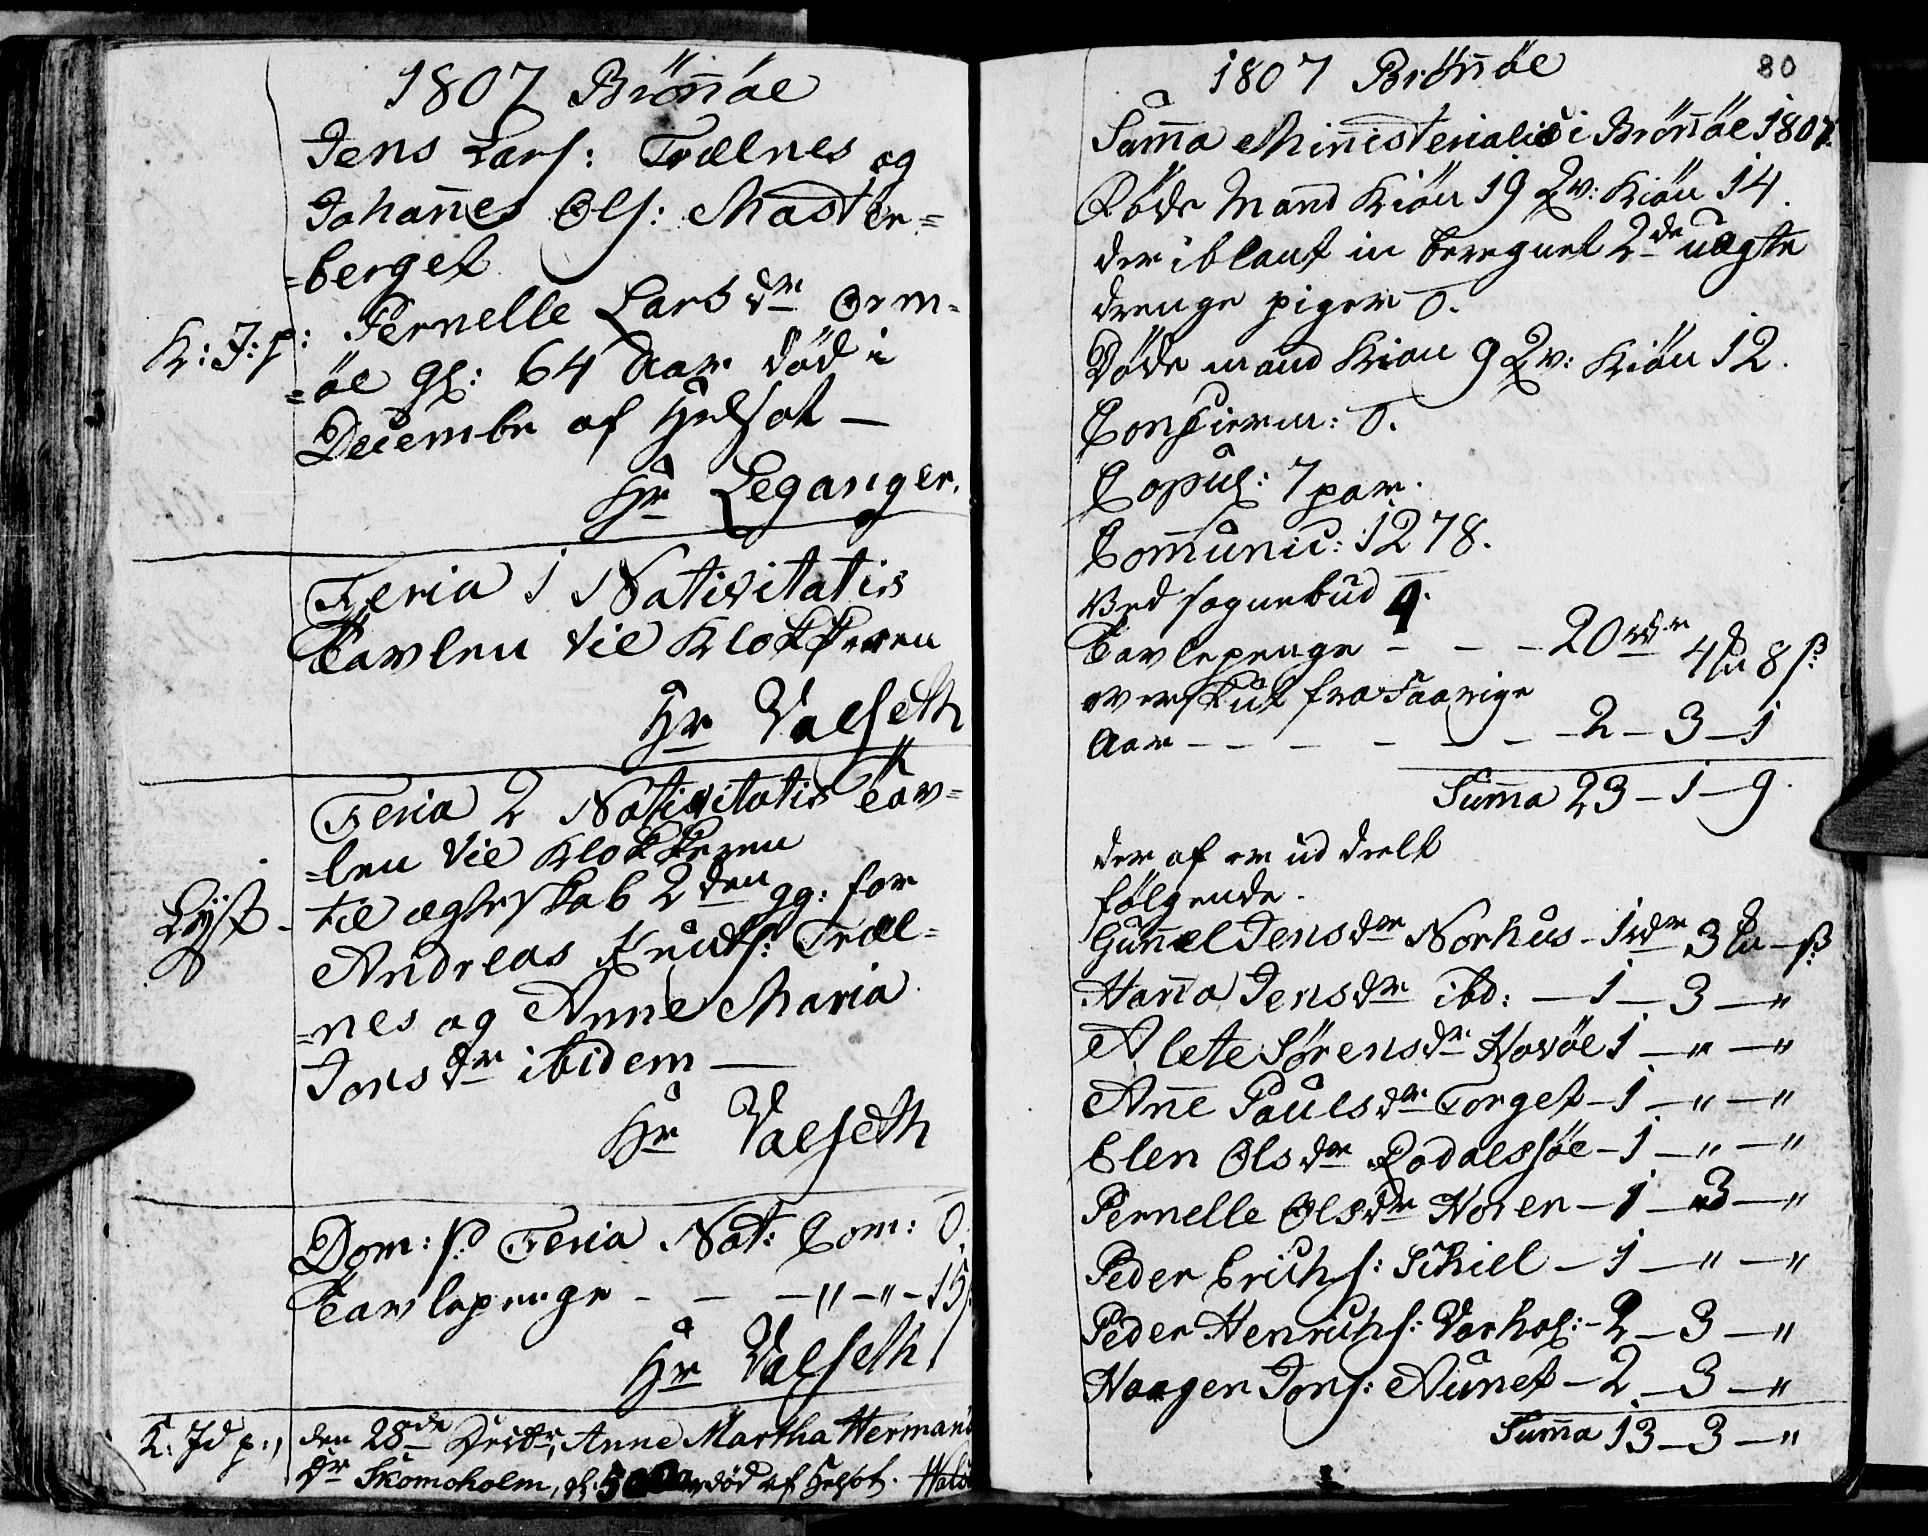 1807 Brönöe
Jens Larſ: Trælnes og
Johannes Olſ: Master=
=berget
K: J: p: Pernelle Larsdr Orm=
=öe gl: 64 Aar död i
Decembr af Helsot —
Hr Leganger.
Feria 1 Nativitatis
Tavlen til Klokkeren
Hr Valseth
Feria 2 Nativitatis Tav=
=len til Klokkeren
Lyst - til ægteskab 2den gg: for
Andreas Knudſ: Træl=
=nes og Anne Maria
Jonsdr ibidem —
Hr Valseth
Dom: p: Feria Nat: Com: 0.
Tavlepenge - - - " - " - 15
Hr Valseth
K: Jd p:, den 28de Anne Martha Hermans
dr Skomoholm, gl: död af Helsot.
1807 Brönöe 80
Summa Ministerialis i Brönöe 1807.
Födde Mand Kiön 19 Qv: Kiön 14.
der iblant er beregnet 2de uægte
drenge piger 0.
Döde mand Kiön 9 Qv: Kiön 12.
Confirm: 0.
Copul: 7 par.
Communic: 1278.
Ved sognebud 4.
Tavlepenge - - - 20 rdr 4 8 ß
overskud fra Forrige
Aar - - - - - - - 2 - 3 - 1
Summa 23 - 1 - 9.
der af er ud deelt
fölgende.
Gunnel Jensdr Norhus - 1 rdr 3 - ß
Hanna Jensdr ibd: - 1 - 3 - "
Alete Sörensdr Havöe 1 - " - "
Anne Paulsdr Torget - 1 - " - "
Elen Olsdr Rodalssöe - 1 - " - "
Pernelle Olsdr Horen - 1 - 3 - "
Peder Erichſ: Schiell - 1 - " - "
Peder Henrichſ: Varhol: - 2 - 3 - "
Haagen Jonſ: Aunet - 2 - 3 - "
Summa 13 - 3 - "